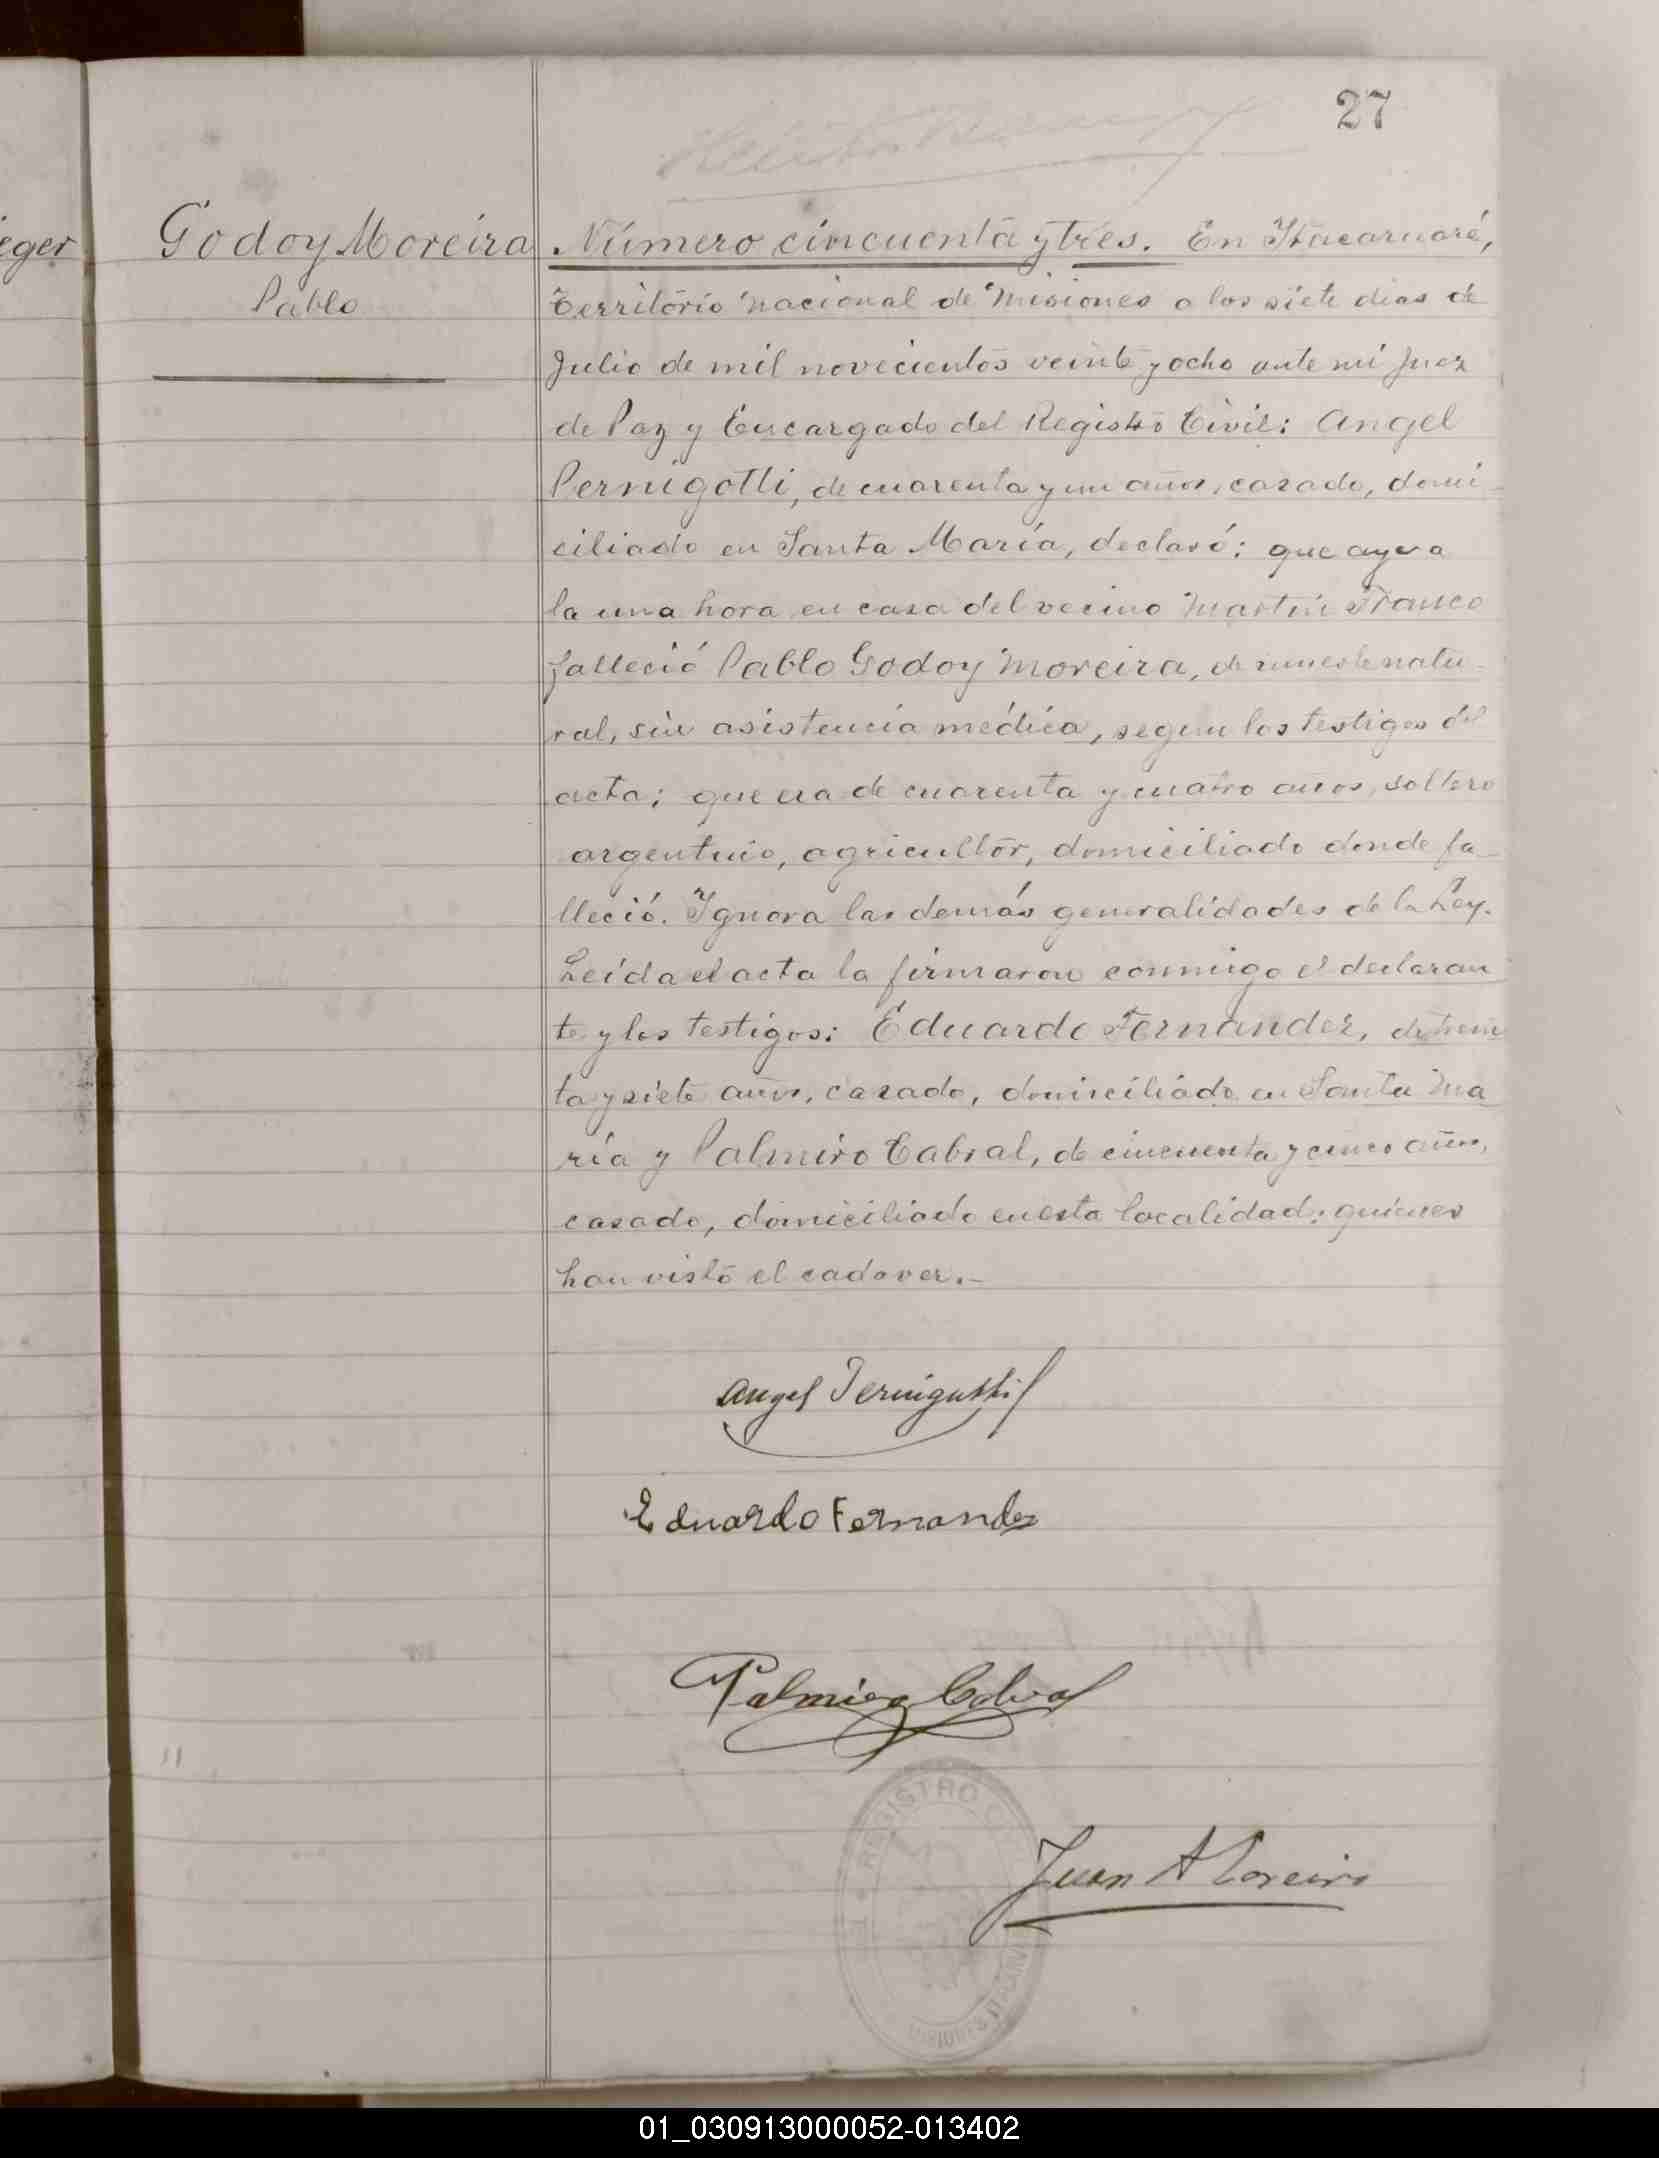 27
eger
Godoy Moreira
Pablo
Número cincuenta y tres. En Itacaruaré,
Territorio Nacional de Misiones a los siete dias de
Julio de mil novecientos veinte y ocho ante mi Juez
de Paz y Encargado del Registro Civil: Angel
Pernigotti, de cuarenta y un años, casado, domi
ciliado en Santa María, declaró: que ayer a
la una hora en casa del vecino Martín Franco
falleció Pablo Godoy Moreira, de muerte natu-
ral, sin asistencia médica, segun los testigos del
acta; que era de cuarenta y cuatro años, soltero
argentino, agricultor, domiciliado donde fa-
lleció. Ignora las demás generalidades de la Ley.
Leida el acta la firmaron conmigo el declaran
te y los testigos: Eduardo Fernandez, de trein
ta y siete años, casado, domiciliado en Santa Ma
ría y Palmiro Cabral, de cincuenta y cinco años,
casado, domiciliado en esta localidad: quienes
han visto el cadaver.-
Angel Pernigotti
Eduardo Fernandez
Palmiro Cabral
REGISTRO
MISIONES
Juan A
01_030913000052-013402